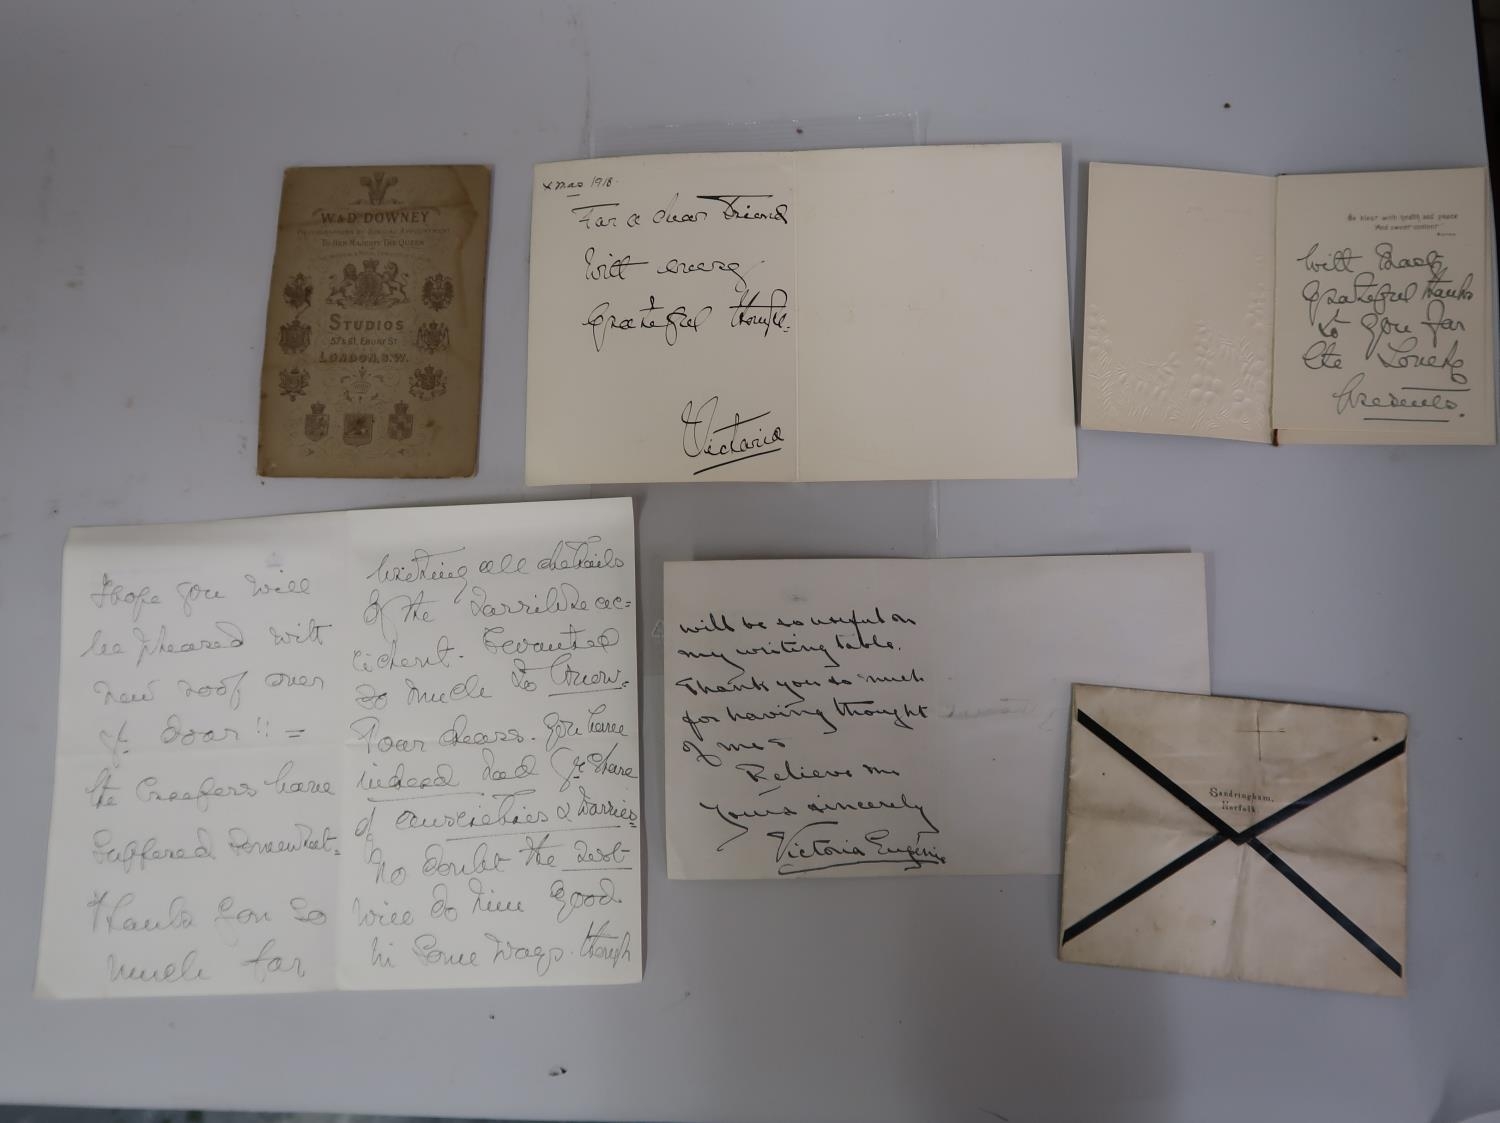 W & D. DOWNEY
PHOTOGRAPHERS BY SPECIAL APPOINTMENT
TO HER MAJESTY THE QUEEN
STUDIOS
57 & 61, EBURY ST
LONDON, S.W.
Xmas 1918.
For a dear Friend
With every
Grateful thought.
Victoria
Be blest with health and peace
And sweet content
With
Grateful thanks
to you for
the Lovely
Presents.
I hope you will
be pleased with
new roof over
yr door!! =
the Creepers have
suffered somewhat =
Thanks you so
much for
writing all details
of the terrible ac=
cident. I wanted
so much to know.
Poor dears. You have
indeed had yr share
of anxieties & worries
no doubt the rest
will do him good
in some ways. though
will be so useful on
my writing table.
Thank you so much
for having thought
of me &
Believe me
yours sincerely
Victoria Eugénie
Sandringham,
Norfolk